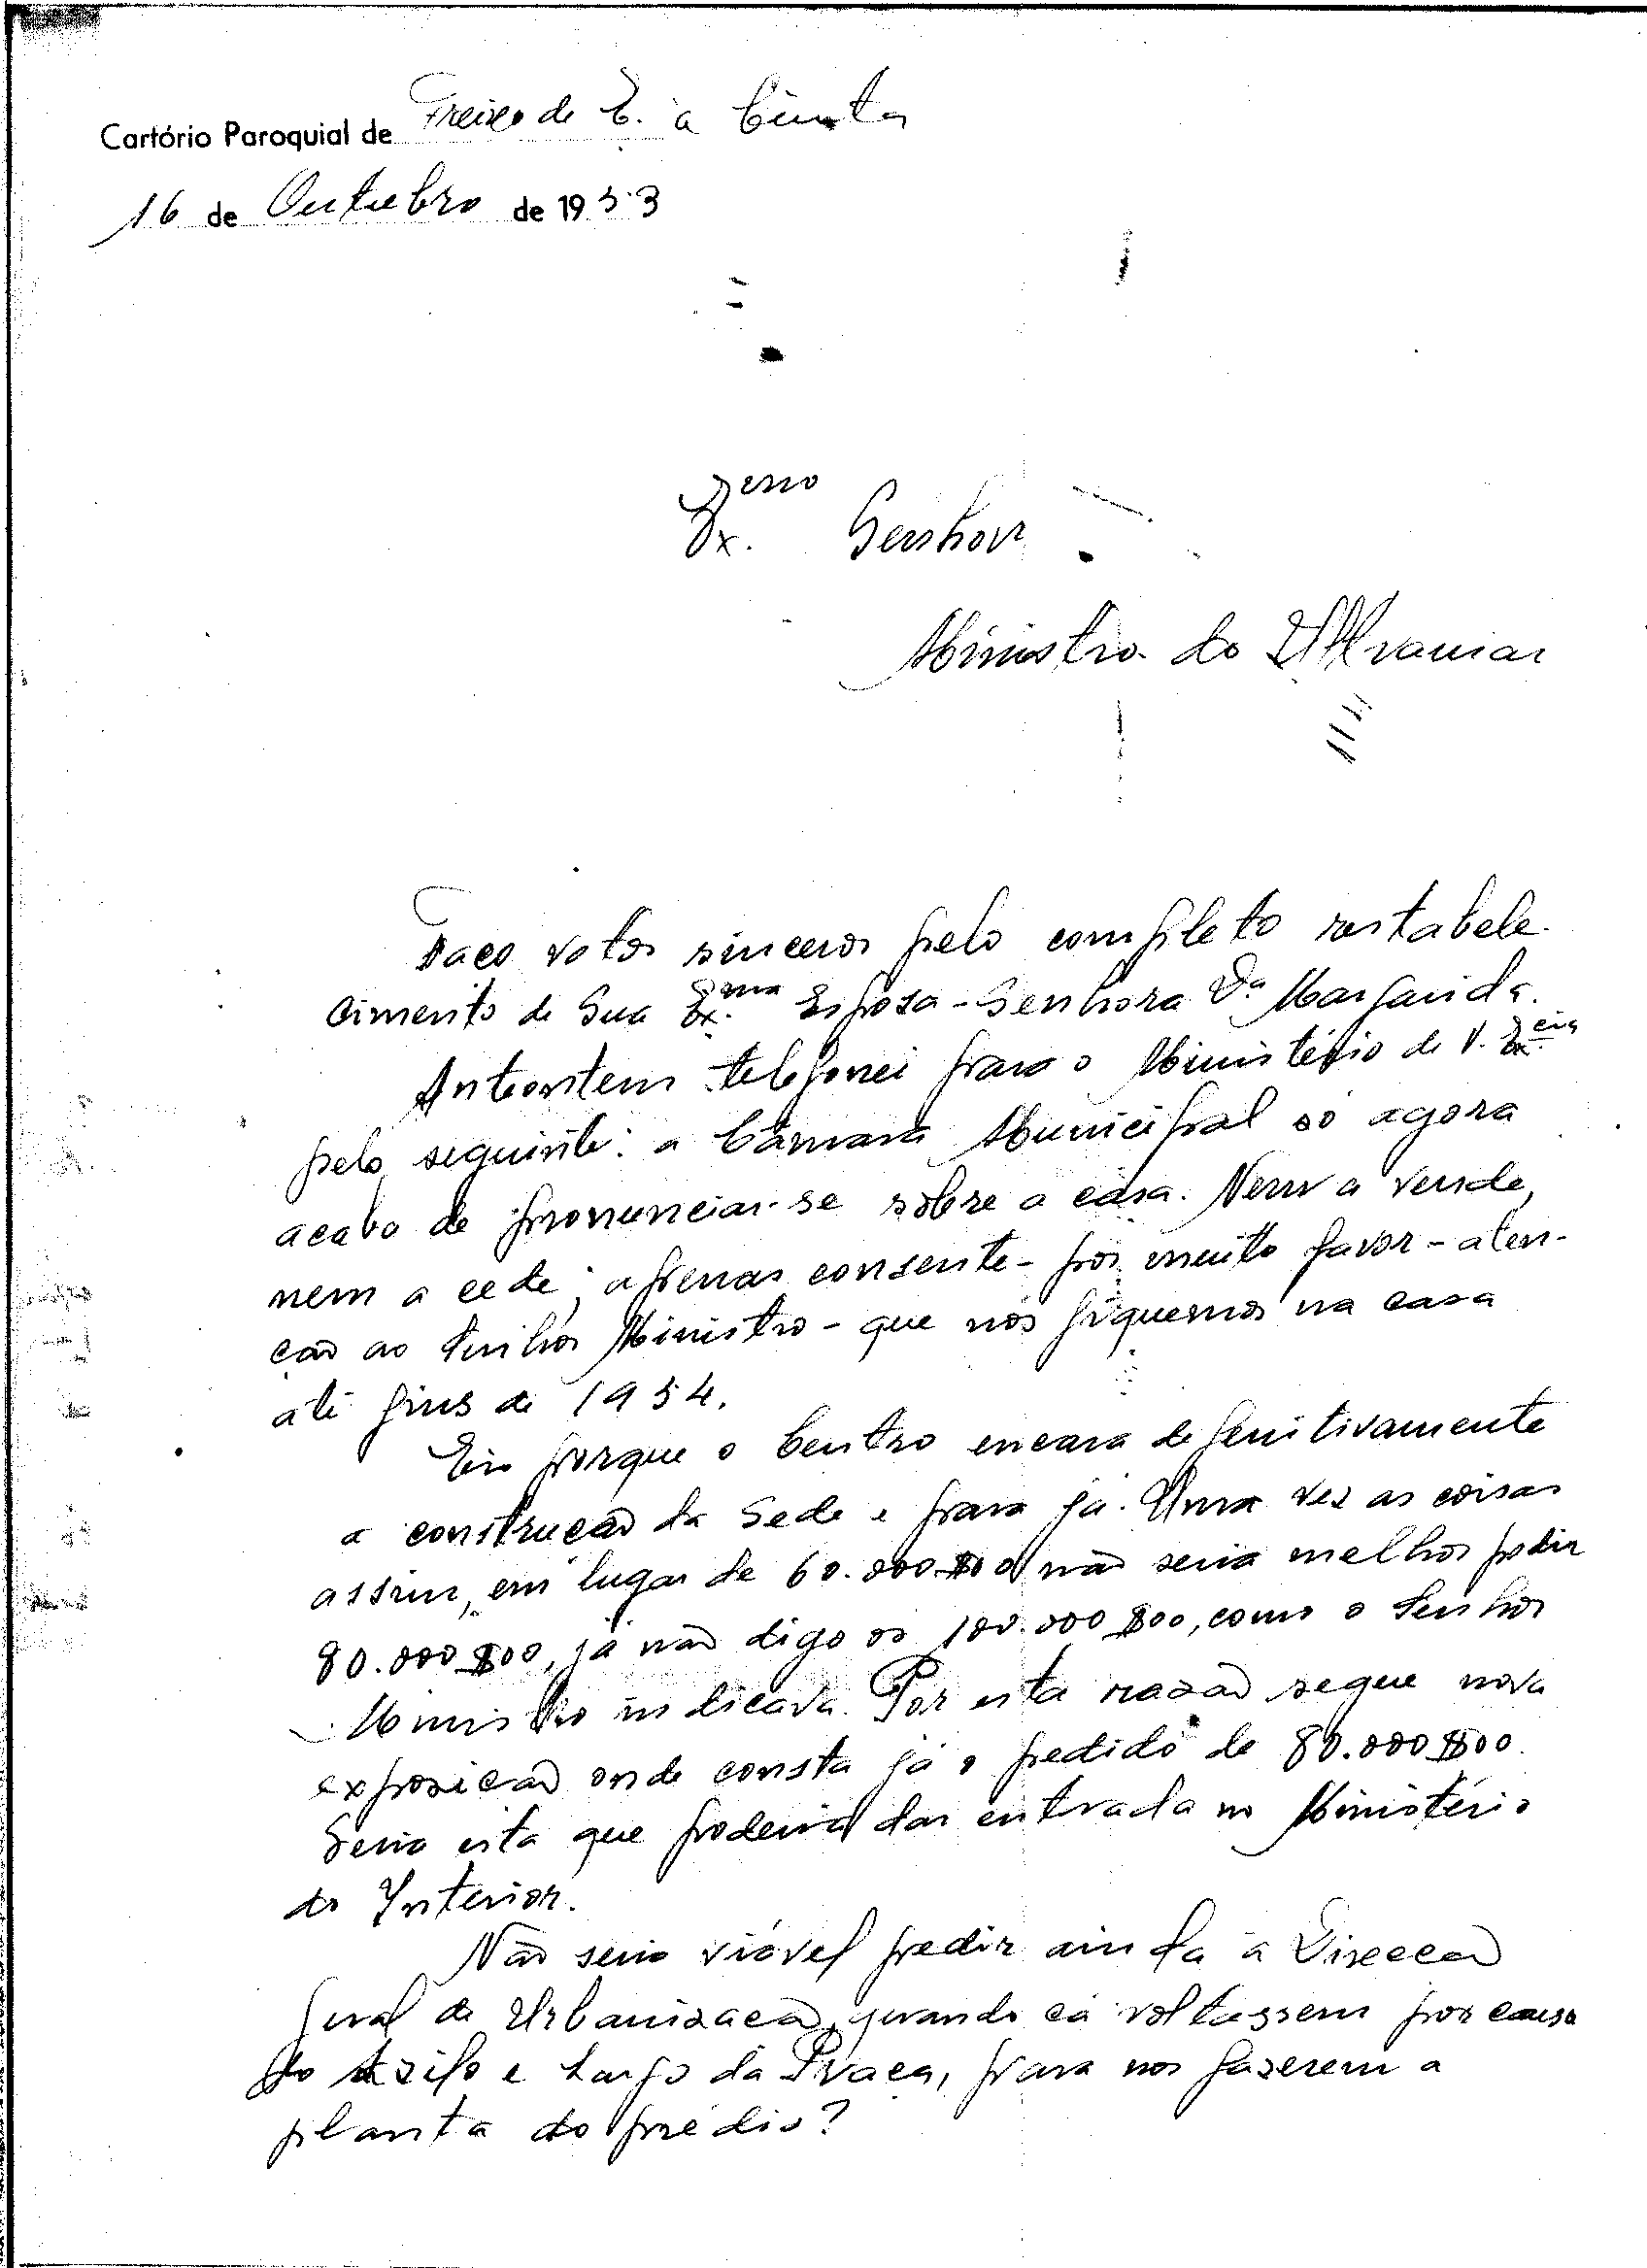 Cartório Paroquial de Freixo de E. à Cinta
16 de Outubro de 1953
Ex.mo Senhor
Ministro do Ultramar
Faço votos sinceros pelo completo restabele-
cimento de Sua Ex.ma Esposa - Senhora D.a Margarida.
Anteontem telefonei para o Ministério de V. Ex.cia
pelo seguinte: a Câmara Municipal só agora
acaba de pronunciar-se sôbre a casa. Nem a vende,
nem a cede; apenas consente - por muito favor - aten-
ção ao Senhor Ministro - que nós fiquemos na casa
até fins de 1954.
Eis porque o Centro encara definitivamente
a construção da Sede e para já. Uma vez as coisas
assim, em lugar de 60.000$00 não seria melhor pedir
80.000$00, já não digo os 100.000$00, como o Senhor
Ministro indicava. Por esta razão segue nova
exposição onde consta já o pedido de 80.000$00.
Seria esta que poderia dar entrada no Ministério
do Interior.
Não seria viável pedir ainda à Direcção
Geral de Urbanização, quando cá voltassem por causa
do Asilo e Largo da Praça, para nos fazerem a
planta do prédio?